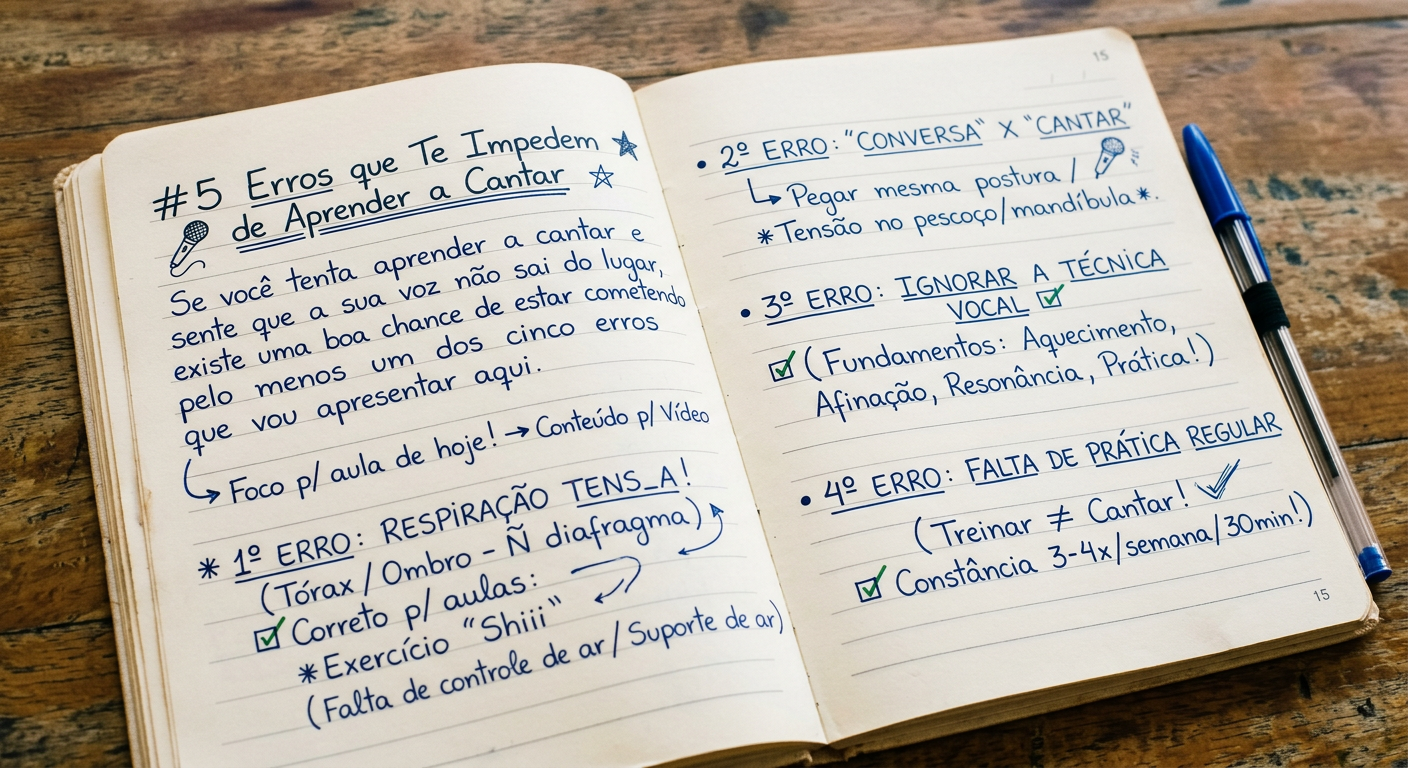 #5 Erros que Te Impedem
de Aprender a Cantar
Se você tenta aprender a cantar e
sente que a sua voz não sai do lugar,
existe uma boa chance de estar cometendo
pelo menos um dos cinco erros
que vou apresentar aqui.
Foco p/ aula de hoje! → Conteúdo p/ Vídeo
* 1º ERRO: RESPIRAÇÃO TENS_A!
(Tórax / Ombro - Ñ diafragma)
☑ Correto p/ aulas:
* Exercício "Shiii"
(Falta de controle de ar / Suporte de ar)
15
• 2º ERRO: "CONVERSA" X "CANTAR"
↳ Pegar mesma postura /
* Tensão no pescoço/mandíbula *.
• 3º ERRO: IGNORAR A TÉCNICA
VOCAL ☑
☑ (Fundamentos: Aquecimento,
Afinação, Resonância, Prática!)
• 4º ERRO: FALTA DE PRÁTICA REGULAR
(Treinar ≠ Cantar! ✓
☑ Constância 3-4x/semana/30min!)
15